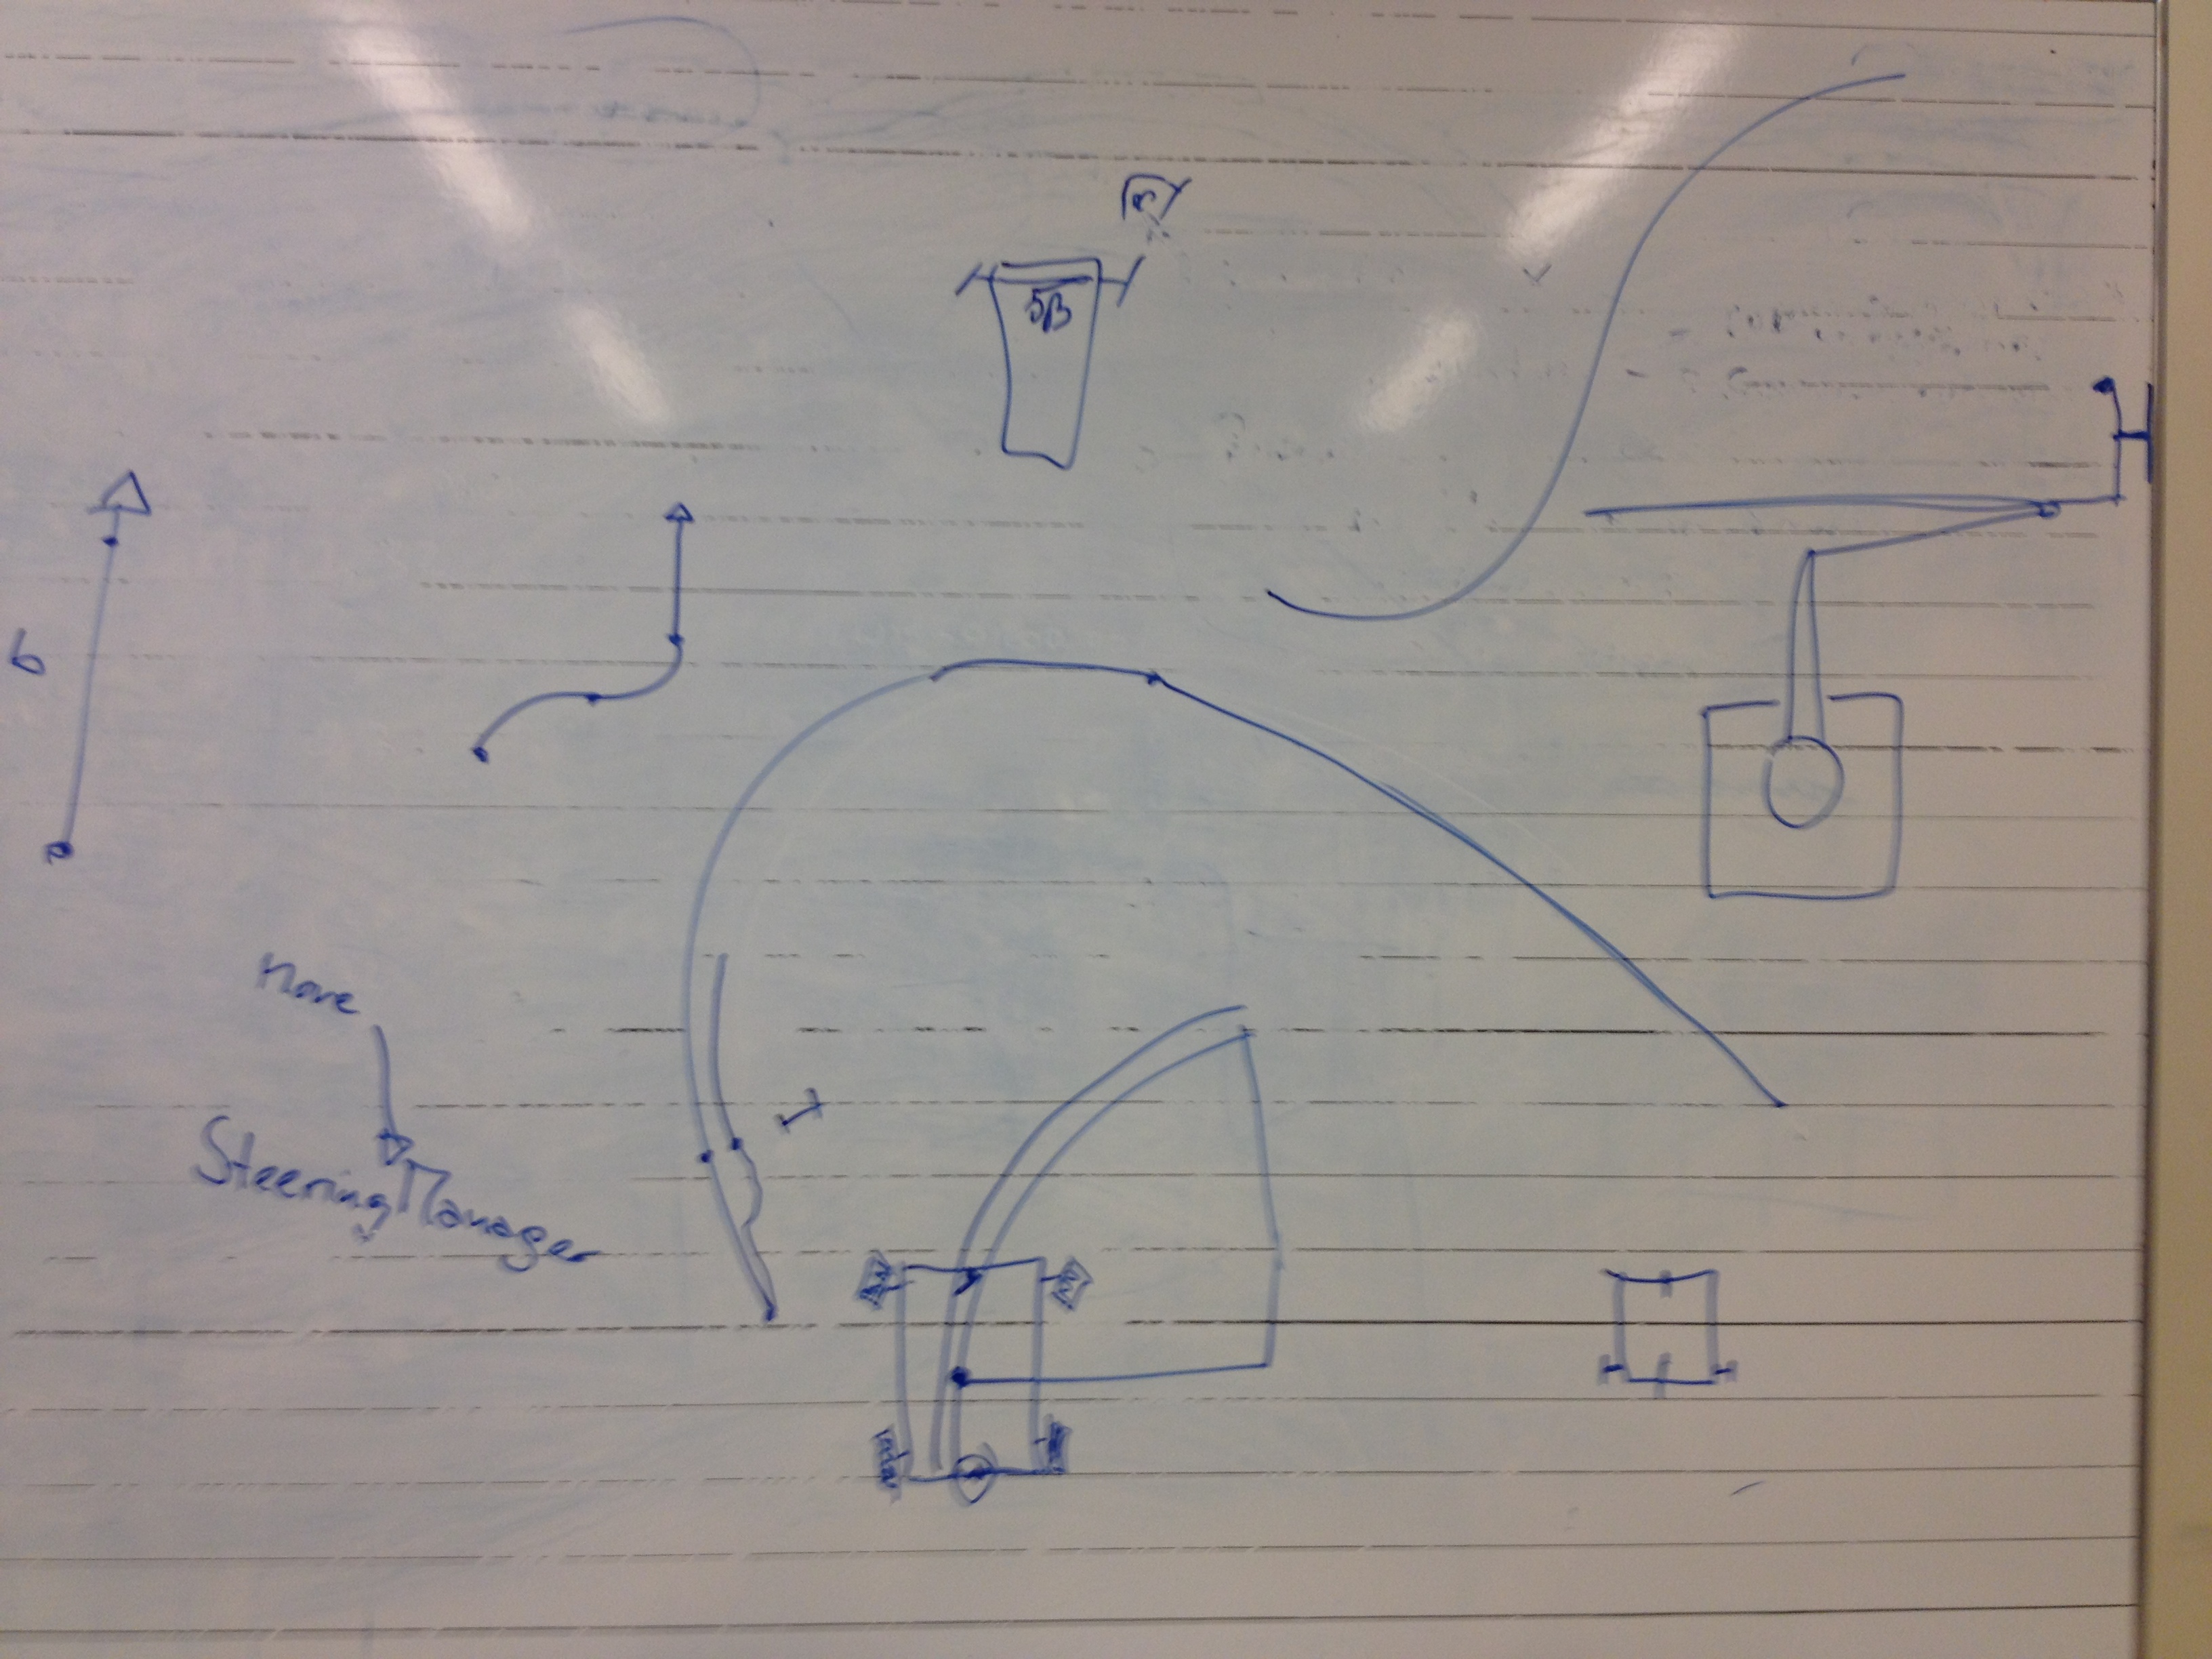 5B
6
Move
Steering Manager